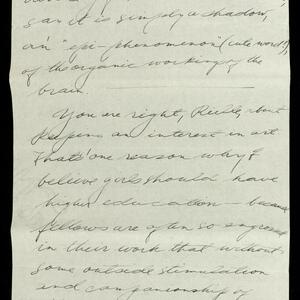 say it is simply a shadow,
an "epi-phenomenon" (cute word!),
of the organic working of the
brain.
You are right, about
keeping an interest in art
That's one reason why I
believe girls should have
higher education – because
fellows are often so engrossed
in their work that without
some outside stimulation
and companionship of